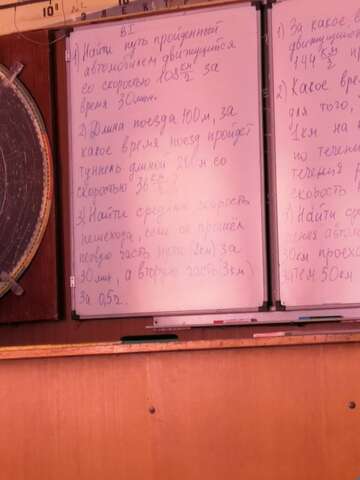 В I
1) Найти путь пройденный
автомобилем движущийся
со скоростью 108 км/ч за
время 30 мин.
2) Длина поезда 100 м, за
какое время поезд пройдет
туннель длиной м со
скоростью 36
3) Найти среднюю скорость
пешехода, если он прошёл
первую часть пути (2км) за
30 мин, а вторую часть (3км)
за 0,5 ч.
1) За какое
движущийся
144 км/ч
2) Какое вре
для того,
1км на
по течени
течения р
скорость
Найти ср
30км проех
50км